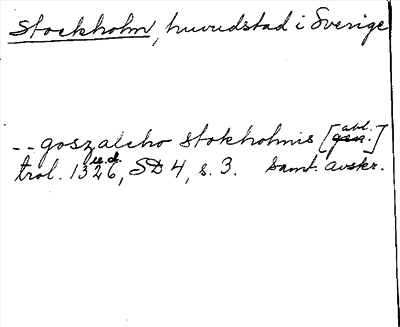 Stockholm, huvudstad i Sverige
-- goszalcho stokholmis [abl.]
trol. 1326, u.d. SD 4, s. 3. Samt. avskr.